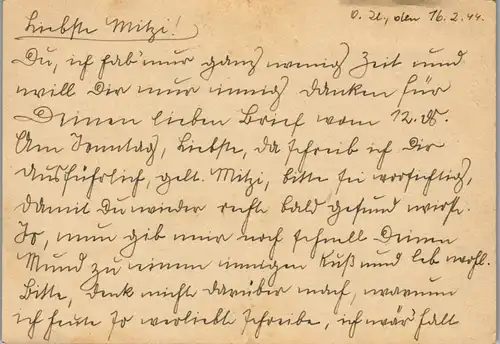 O. U., den 16.2.44.
Liebste Mitzi!
Du, ich hab' nur ganz wenig Zeit und
will Dir nur innig danken für
Deinen lieben Brief vom 12. ds.
Am Sonntag, Liebste, da schreib ich Dir
ausführlich, gelt. Mitzi, bitte sei vorsichtig,
damit Du wieder recht bald gesund wirst.
So, nun gib mir noch schnell Deinen
Mund zu einem innigen Kuß und leb wohl.
Bitte, denk nicht darüber nach, warum
ich heute so verliebt schreibe, ich wär' halt